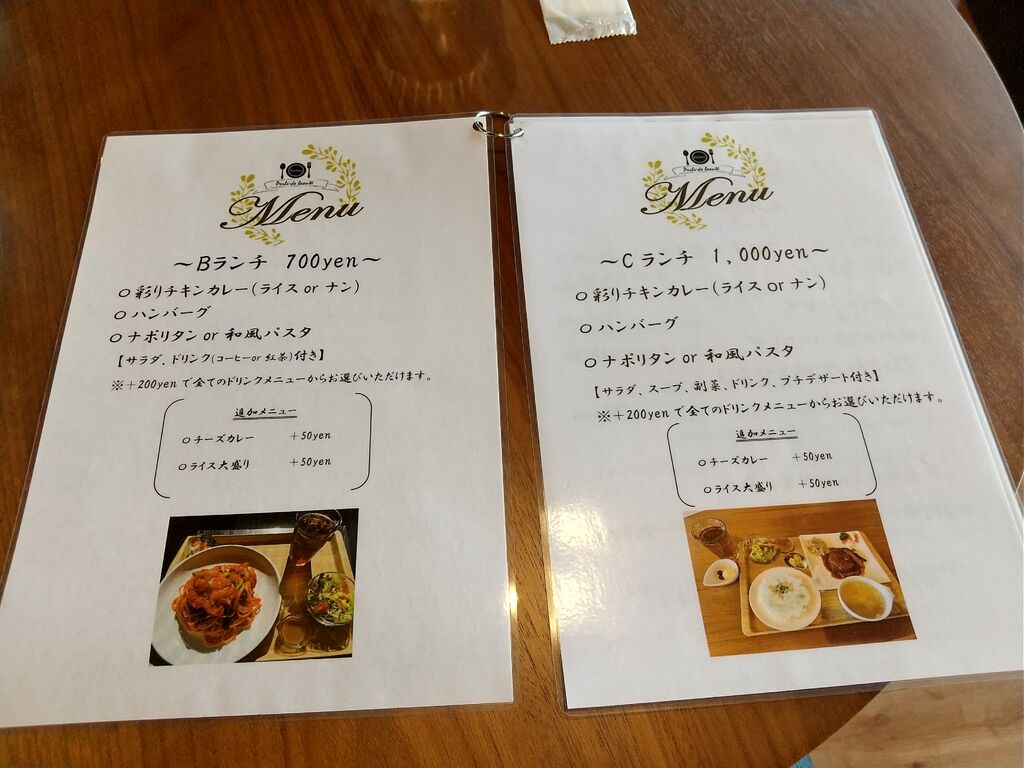 Porte de beauté
Menu
～Bランチ 700yen～
○彩りチキンカレー(ライス or ナン)
○ハンバーグ
○ナポリタン or 和風パスタ
【サラダ、ドリンク(コーヒーor 紅茶)付き】
※＋200yen で全てのドリンクメニューからお選びいただけます。
追加メニュー
○チーズカレー ＋50yen
○ライス大盛り ＋50yen
Porte de beauté
Menu
～C ランチ 1,000yen～
○彩りチキンカレー(ライス or ナン)
○ハンバーグ
○ナポリタン or 和風パスタ
【サラダ、スープ、副菜、ドリンク、プチデザート付き】
※＋200yen で全てのドリンクメニューからお選びいただけます。
追加メニュー
○チーズカレー ＋50yen
○ライス大盛り ＋50yen